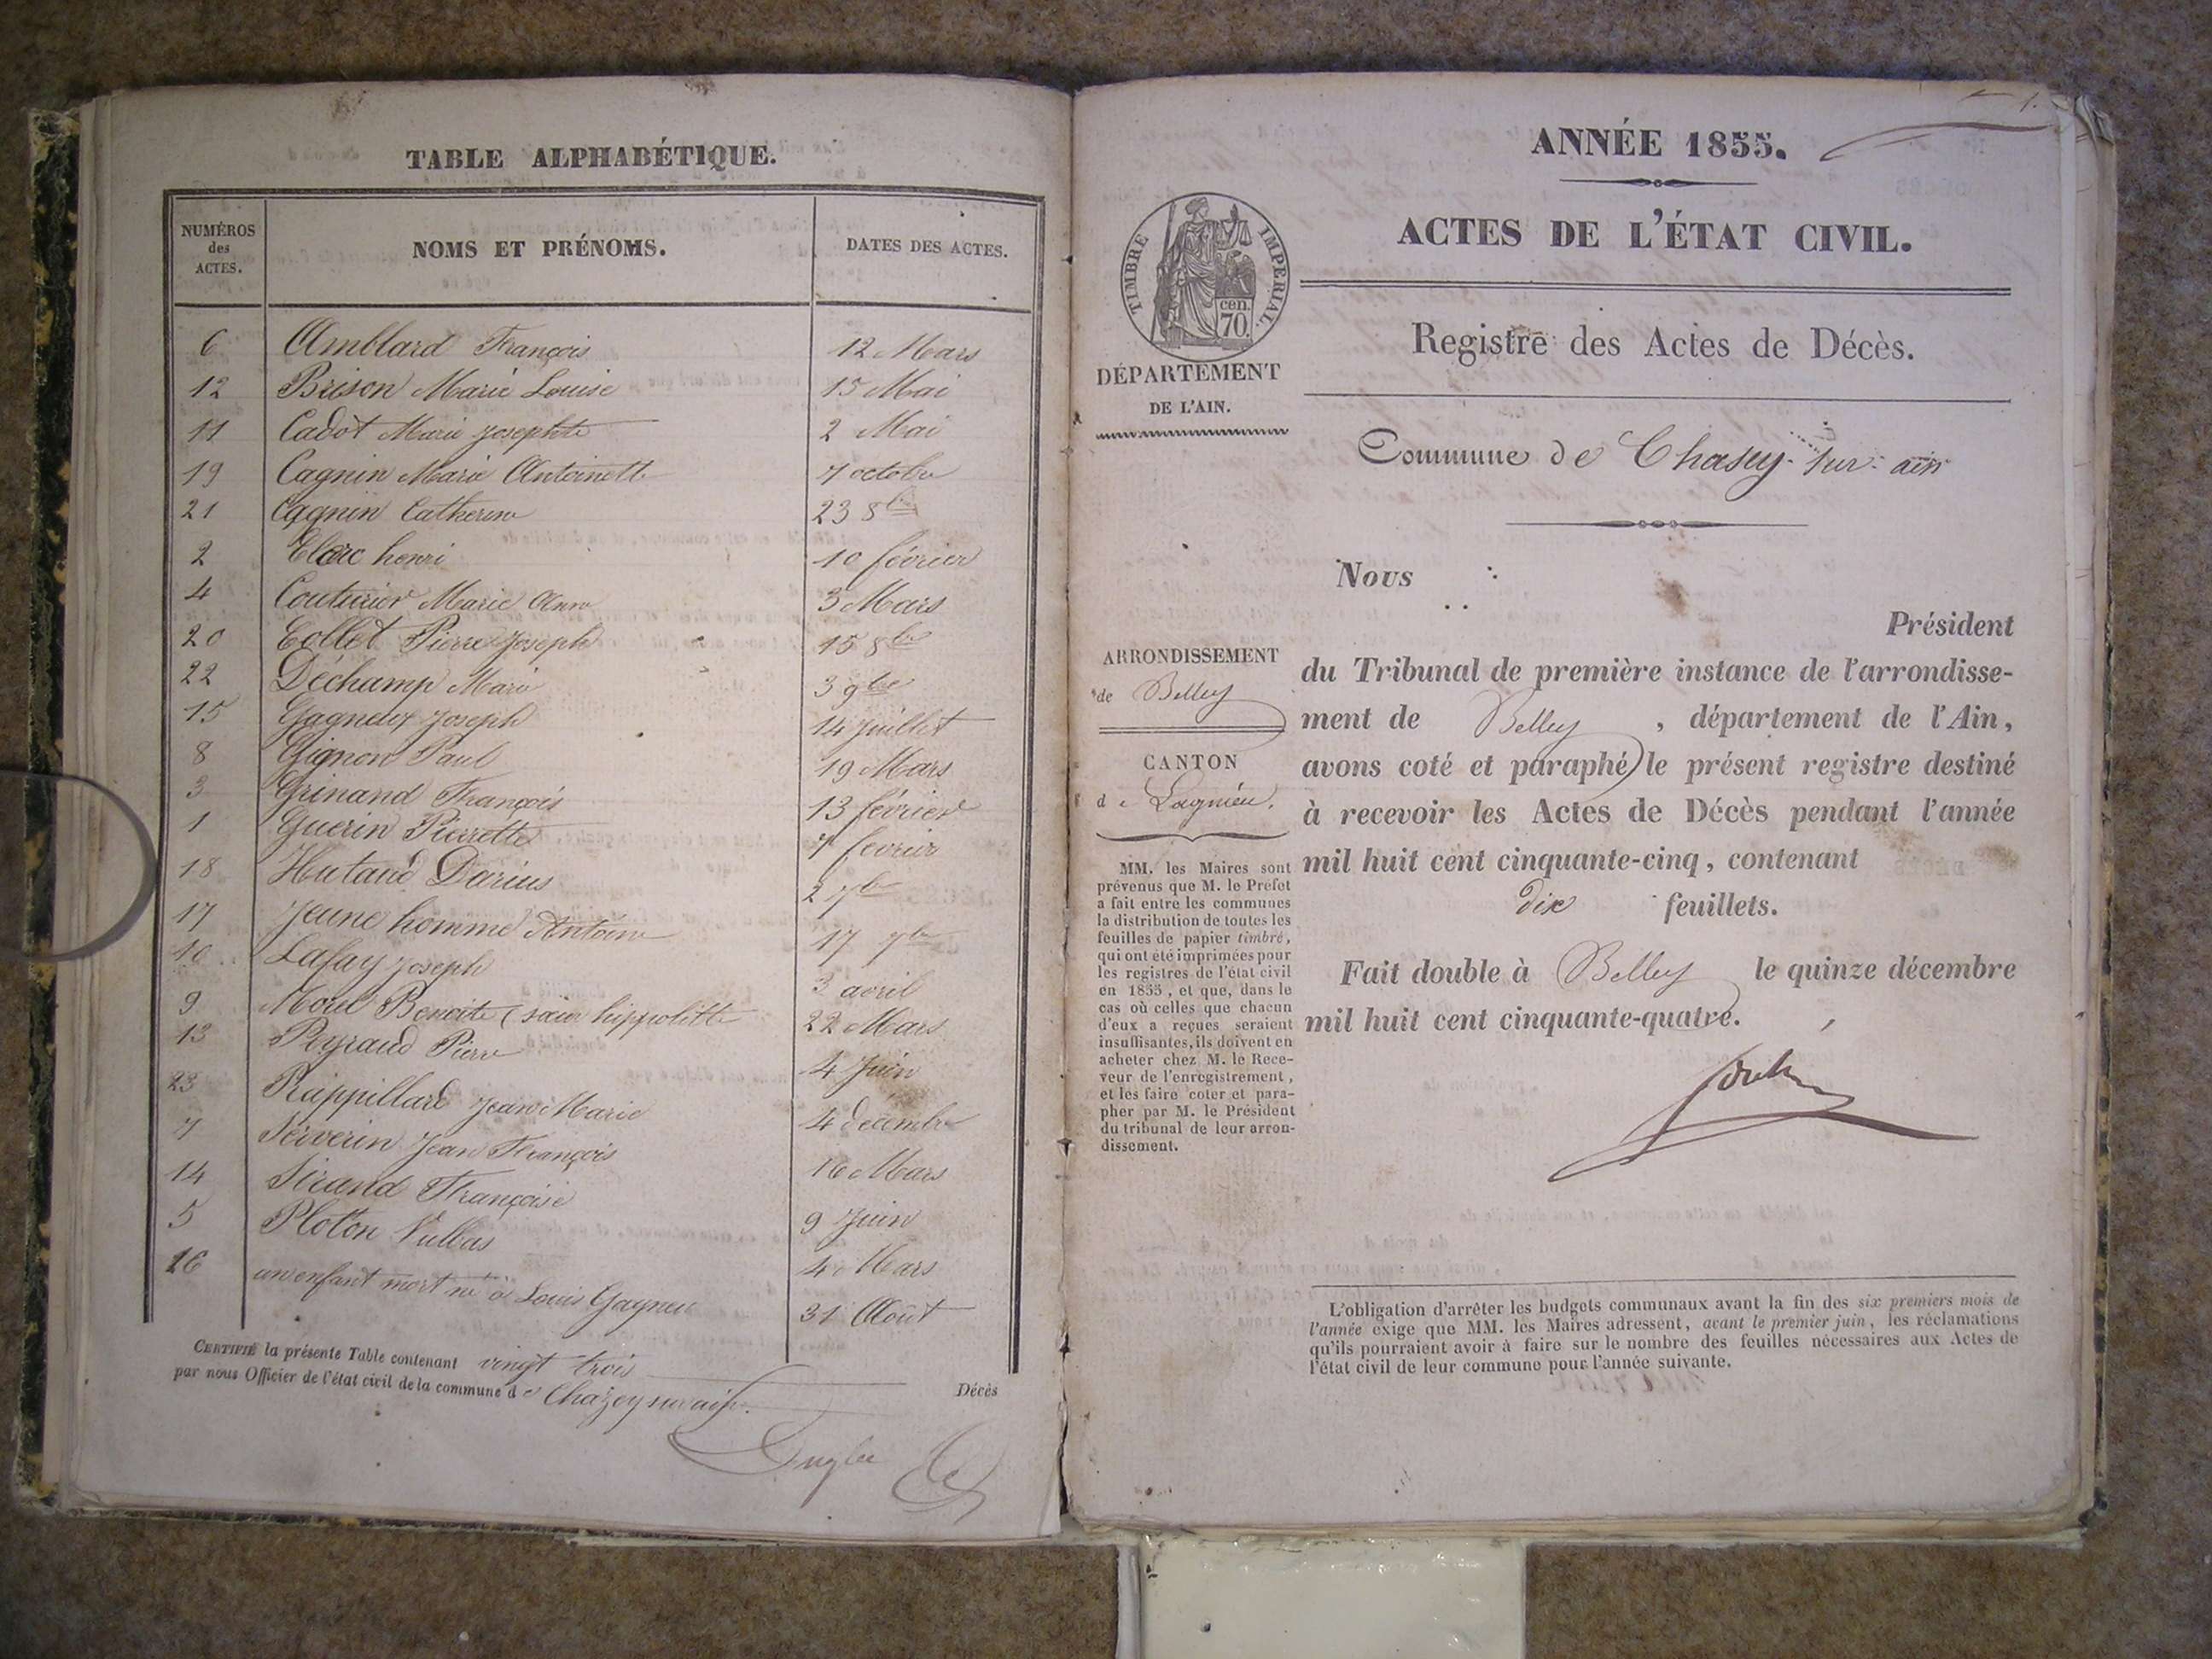 TABLE ALPHABÉTIQUE.
NUMÉROS des ACTES. NOMS ET PRÉNOMS. DATES DES ACTES.
6 Amblard François 12 Mars
12 Brison Marie Louise 15 Mai
11 Cadot Marie Josephte 2 Mai
19 Cagnin Marie Antoinette 7 octobre
21 Cagnin Catherine 23 8bre
2 Clerc henri 10 février
4 Couturier Marie Anne 3 Mars
20 Collet Pierre Joseph 15 8bre
22 Déchamp Marie 3 9bre
15 Gagneux Joseph 14 Juillet
8 Gignon Paul 19 Mars
3 Grinand François 13 février
1 Guerin Pierrette 7 fevrier
18 Hutand Darius 2 7bre
17 Jeune homme Antoine 17 7bre
10 Lafay Joseph 3 avril
9 Morel Benoite (sœur hippolitte 22 Mars
13 Peyraud Pierre 4 Juin
23 Rappillard Jean Marie 4 décembre
7 Serverin Jean François 16 Mars
14 Sirand Françoise 9 Juin
5 Ploton Vulbas 4 Mars
16 un enfant mort né à Louis Gagneu 31 Aout
CERTIFIÉ la présente Table contenant vingt trois Décès
par nous Officier de l'état civil de la commune de Chazey sur ain.
1.
ANNÉE 1855.
ACTES DE L'ÉTAT CIVIL.
TIMBRE IMPERIAL.
cen. 70.
DÉPARTEMENT
DE L'AIN.
Registre des Actes de Décès.
Commune de Chasey-sur-ain
Nous
Président
ARRONDISSEMENT
de Belley
CANTON
de Lagnieu.
MM. les Maires sont
prévenus que M. le Préfet
a fait entre les communes
la distribution de toutes les
feuilles de papier timbré,
qui ont été imprimées pour
les registres de l'état civil
en 1855, et que, dans le
cas où celles que chacun
d'eux a reçues seraient
insuffisantes, ils doivent en
acheter chez M. le Rece-
veur de l'enregistrement,
et les faire coter et para-
pher par M. le Président
du tribunal de leur arron-
dissement.
du Tribunal de première instance de l'arrondisse-
ment de Belley, département de l'Ain,
avons coté et paraphé le présent registre destiné
à recevoir les Actes de Décès pendant l'année
mil huit cent cinquante-cinq, contenant
dix feuillets.
Fait double à Belley le quinze décembre
mil huit cent cinquante-quatre.
L'obligation d'arrêter les budgets communaux avant la fin des six premiers mois de
l'année exige que MM. les Maires adressent, avant le premier juin, les réclamations
qu'ils pourraient avoir à faire sur le nombre des feuilles nécessaires aux Actes de
l'état civil de leur commune pour l'année suivante.